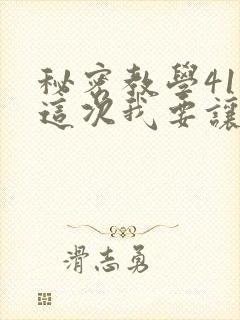 秘密教學41
這次我要讓
滑志勇